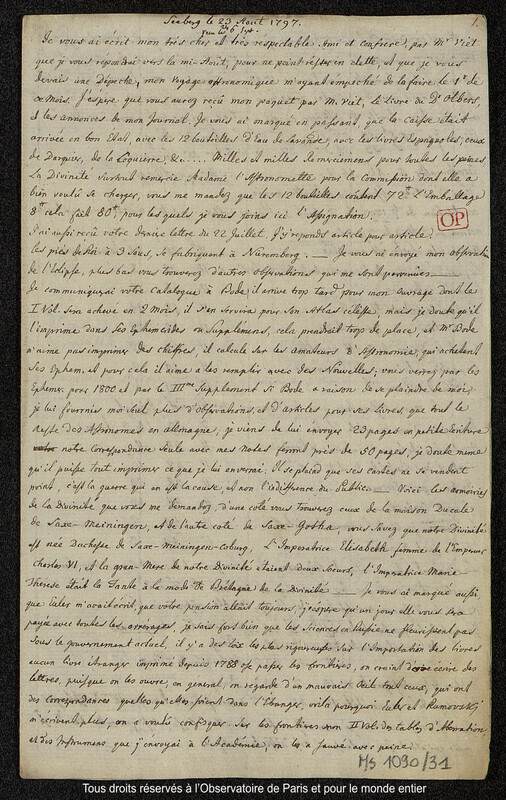 Seeberg le 23 Aout 1797.
1.
Je vous ai écrit mon très cher et très respectable Ami et confrere, par Mr Viet
que je vous repondrai vers la mi-Aout, pour ne point rester en dette, et que je vous
devais une Dépeche, mon voyage astronomique m'ayant empeché de la faire le 1er de
ce Mois. J'espere que vous aurez reçu mon paquet par M. Viet, le livre du Dr Olbers,
et les annonces de mon Journal. Je vous ai marqué en passant, que la caisse était
arrivée en bon Etat, avec les 12 bouteilles d'Eau de Lavande, avec les livres Espagnoles, ceux
de Darquier, de la Coquiere, &c.... Milles et milles remercimens pour toutes les peines
La Divinité surtout remercie Madame l'Astronomette pour la Commission dont elle a
bien voulu se charger, vous me mandez que les 12 bouteilles coutent 72 l'Emballage
8 cela fait 80, pour les quels je vous joins ici l'Assignation.
OP
J'ai aussi reçu votre derniere lettre du 22 Juillet, j'y reponds article par article.
les piés de Roi à 3 Sous, se fabriquent à Nuremberg. — Je vous ai envoyé mon observation
de l'Eclipse, plus bas vous trouverez d'autres observations qui me sont parvenues —
Je communiquerai votre Catalogue à Bode, il arrive trop tard pour mon ouvrage dont le
I Vol. sera achevé en 2 mois, il s'en servira pour son Atlas céleste, mais je doute qu'il
l'imprime dans ses Ephemerides ou Supplemens, cela prendrait trop de place, et Mr Bode
n'aime pas imprimer des chiffres, il calcule sur les amateurs d'Astronomie, qui achetent
ses Ephem. et pour cela il aime a les remplir avec des Nouvelles; vous verrez par les
Ephemer. pour 1800 et par le IIIme Supplement si Bode a raison de se plaindre de moi,
je lui fournis moi seul plus d'observations, et d'articles pour ses livres, que tout le
reste des Astronomes en allemagne, je viens de lui envoyer 23 pages en petite écriture
notre correspondance seule avec mes notes fermt près de 50 pages, je doute meme
qu'il puisse tout imprimer ce que je lui enverai. Il se plaind que ses cartes ne se vendent
point, c'est la guerre qui en est la cause, et non l'indifference du Public — Voici les armoiries
de la Divinité que vous me demandez, d'une coté vous trouverez ceux de la maison Ducale
de Saxe-Meiningen, et de l'autre coté de Saxe-Gotha, vous savez que notre Divinité
est née Duchesse de Saxe-Meiningen-Coburg. L'Imperatrice Elisabeth femme de l'Empereur
Charles VI, et la gran-Mere de notre Divinité étaient deux soeurs, l'Imperatrice Marie
Therese était la Tante à la mode de Brétagne de la Divinité — Je vous ai marqué aussi
que Euler m'avait écrit, que votre pension allait toujours, j'espere qu'un jour elle vous sera
payée avec toutes les arrerages, je sais fort bien que les Sciences en Russie ne fleurissent pas
sous le gouvernement actuel, il y a des Loix les plus rigoureuses sur l'Importation des livres
aucun livre étranger imprimé depuis 1788 ose passer les frontières, on craint d'ecrire des
lettres, puisque on les ouvre, en general, on regarde d'un mauvais Oeil tout ceux, qui ont
des correspondances quelles qu'elles soient dans l'Etranger, voilà pourquoi Euler et Rumovsky
m'écrivent plus, on a voulu confisquer sur les frontières mon II Vol. des tables d'Aberration
et des Instrumens que j'envoyai à l'Académie, on les a sauvé avec peine.
Ms 1090/31
Tous droits réservés à l'Observatoire de Paris et pour le monde entier